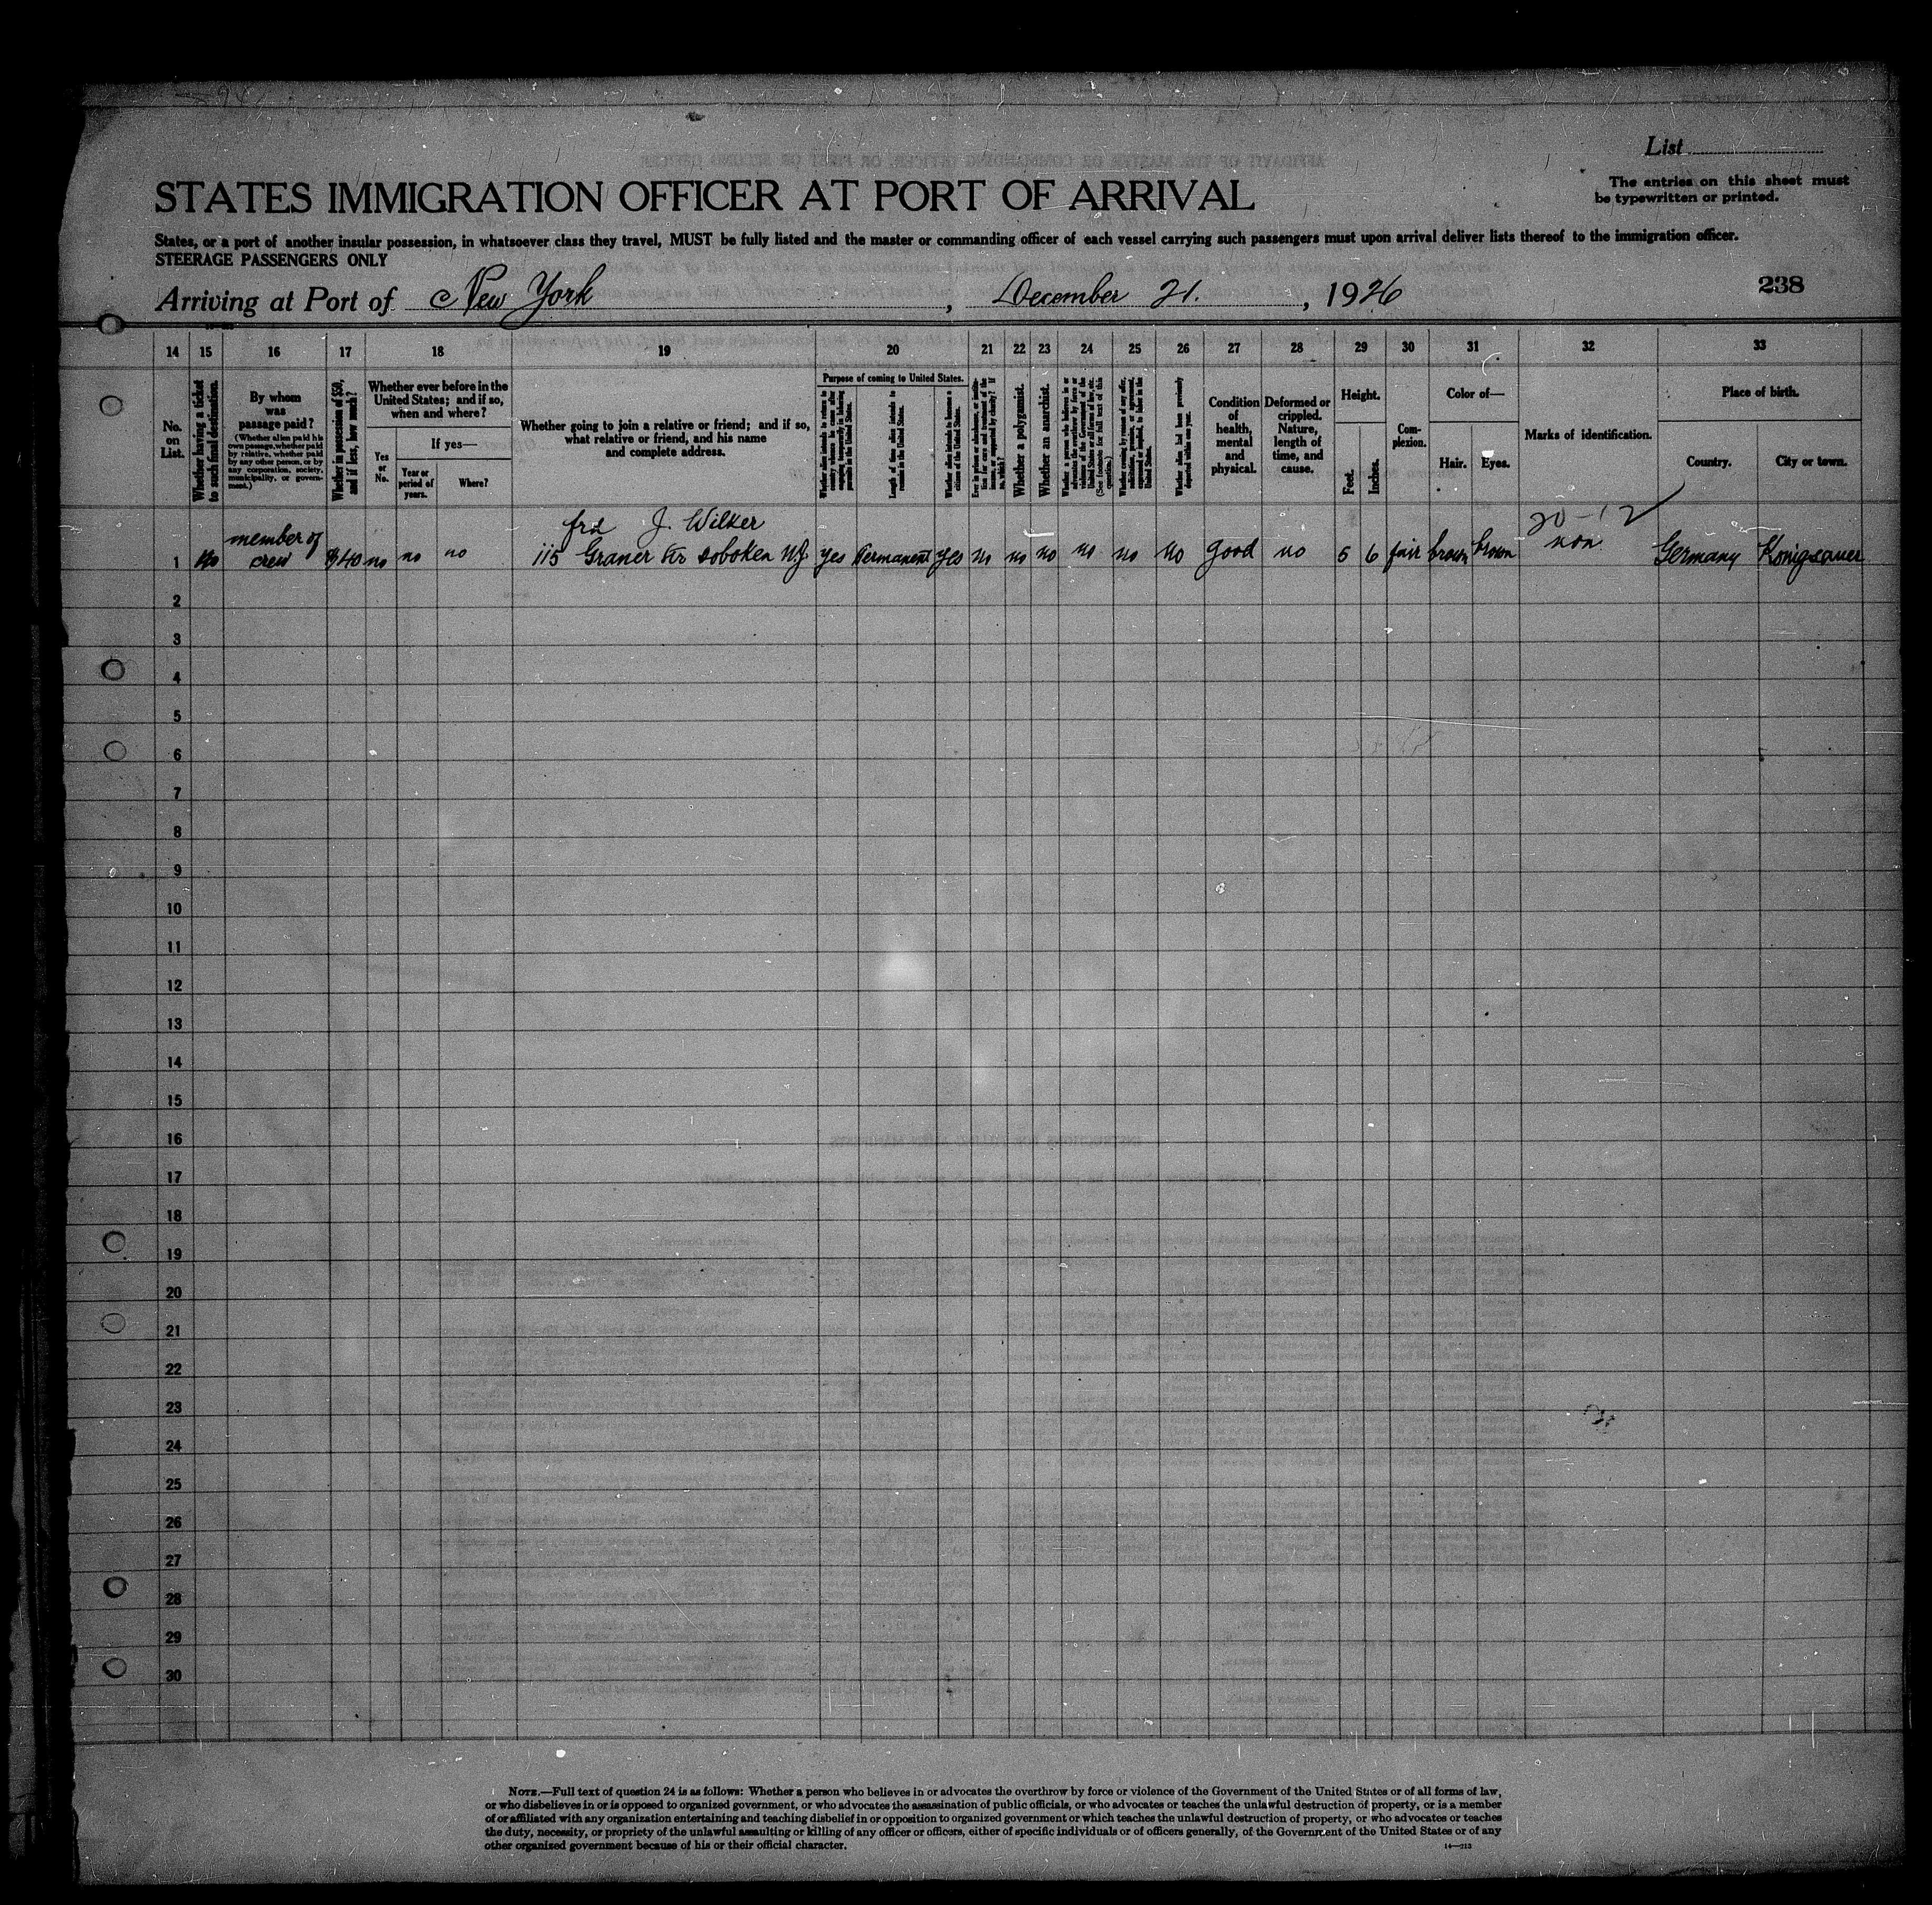 List
The entries on this sheet must
be typewritten or printed.
STATES IMMIGRATION OFFICER AT PORT OF ARRIVAL
States, or a port of another insular possession, in whatsoever class they travel, MUST be fully listed and the master or commanding officer of each vessel carrying such passengers must upon arrival deliver lists thereof to the immigration officer.
STEERAGE PASSENGERS ONLY
238
Arriving at Port of New York, December 21., 1926
14 15 16 17 18 19 20 21 22 23 24 25 26 27 28 29 30 31 32 33
No.
on
List.
Whether having a ticket
to such final destination.
By whom
was
passage paid?
(Whether alien paid his
own passage, whether paid
by relative, whether paid
by any other person, or by
any corporation, society,
municipality, or govern-
ment.)
Whether in possession of $50,
and if less, how much?
Whether ever before in the
United States; and if so,
when and where?
Yes
or
No.
If yes—
Year or
period of
years.
Where?
Whether going to join a relative or friend; and if so,
what relative or friend, and his name
and complete address.
Purpose of coming to United States.
Length of time alien intends to
remain in the United States.
Whether alien intends to become a
citizen of the United States.
Whether a polygamist.
Whether an anarchist.
(See footnote for full text of this
question.)
Condition
of
health,
mental
and
physical.
Deformed or
crippled.
Nature,
length of
time, and
cause.
Height.
Feet.
Inches.
Com-
plexion.
Color of—
Hair.
Eyes.
Marks of identification.
Place of birth.
Country.
City or town.
frd J. Wilker
20-12
1 no member of crew $40 no no no 115 Graner Str soboken NJ yes Permanent yes no no no no no no good no 5 6 fair brown brown non Germany
2
3
4
5
6
7
8
9
10
11
12
13
14
15
16
17
18
19
20
21
22
23
24
25
26
27
28
29
30
NOTE.—Full text of question 24 is as follows: Whether a person who believes in or advocates the overthrow by force or violence of the Government of the United States or of all forms of law,
or who disbelieves in or is opposed to organized government, or who advocates the assassination of public officials, or who advocates or teaches the unlawful destruction of property, or is a member
of or affiliated with any organization entertaining and teaching disbelief in or opposition to organized government or which teaches the unlawful destruction of property, or who advocates or teaches
the duty, necessity, or propriety of the unlawful assaulting or killing of any officer or officers, either of specific individuals or of officers generally, of the Government of the United States or of any
other organized government because of his or their official character.
14—313